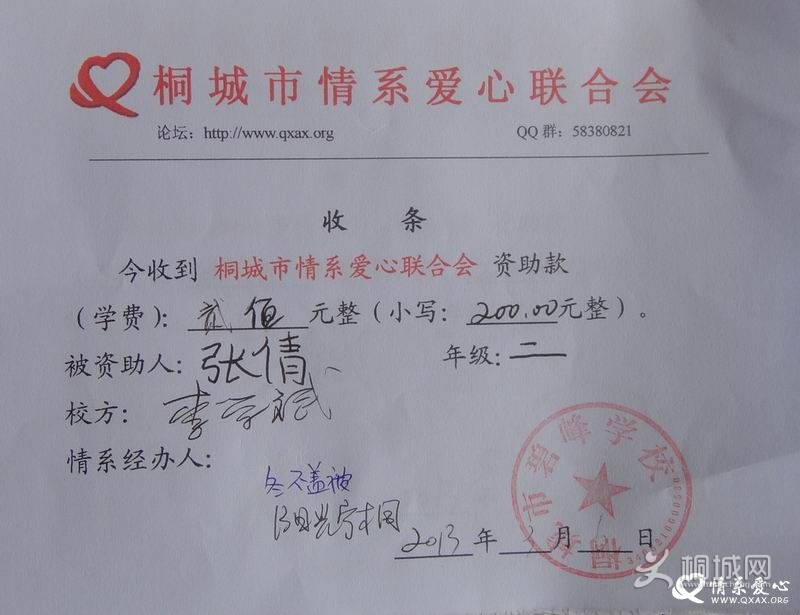 桐城市情系爱心联合会
论坛：http://www.qxax.org QQ 群：58380821
收 条
今收到 桐城市情系爱心联合会 资助款
（学费）： 贰佰 元整（小写： 200.00 元整）。
被资助人： 张倩 年级： 二
校方： 李
情系经办人：
冬不盖被
2013 年 月 日
市碧峰学校
桐城网
情系爱心
WWW.QXAX.ORG